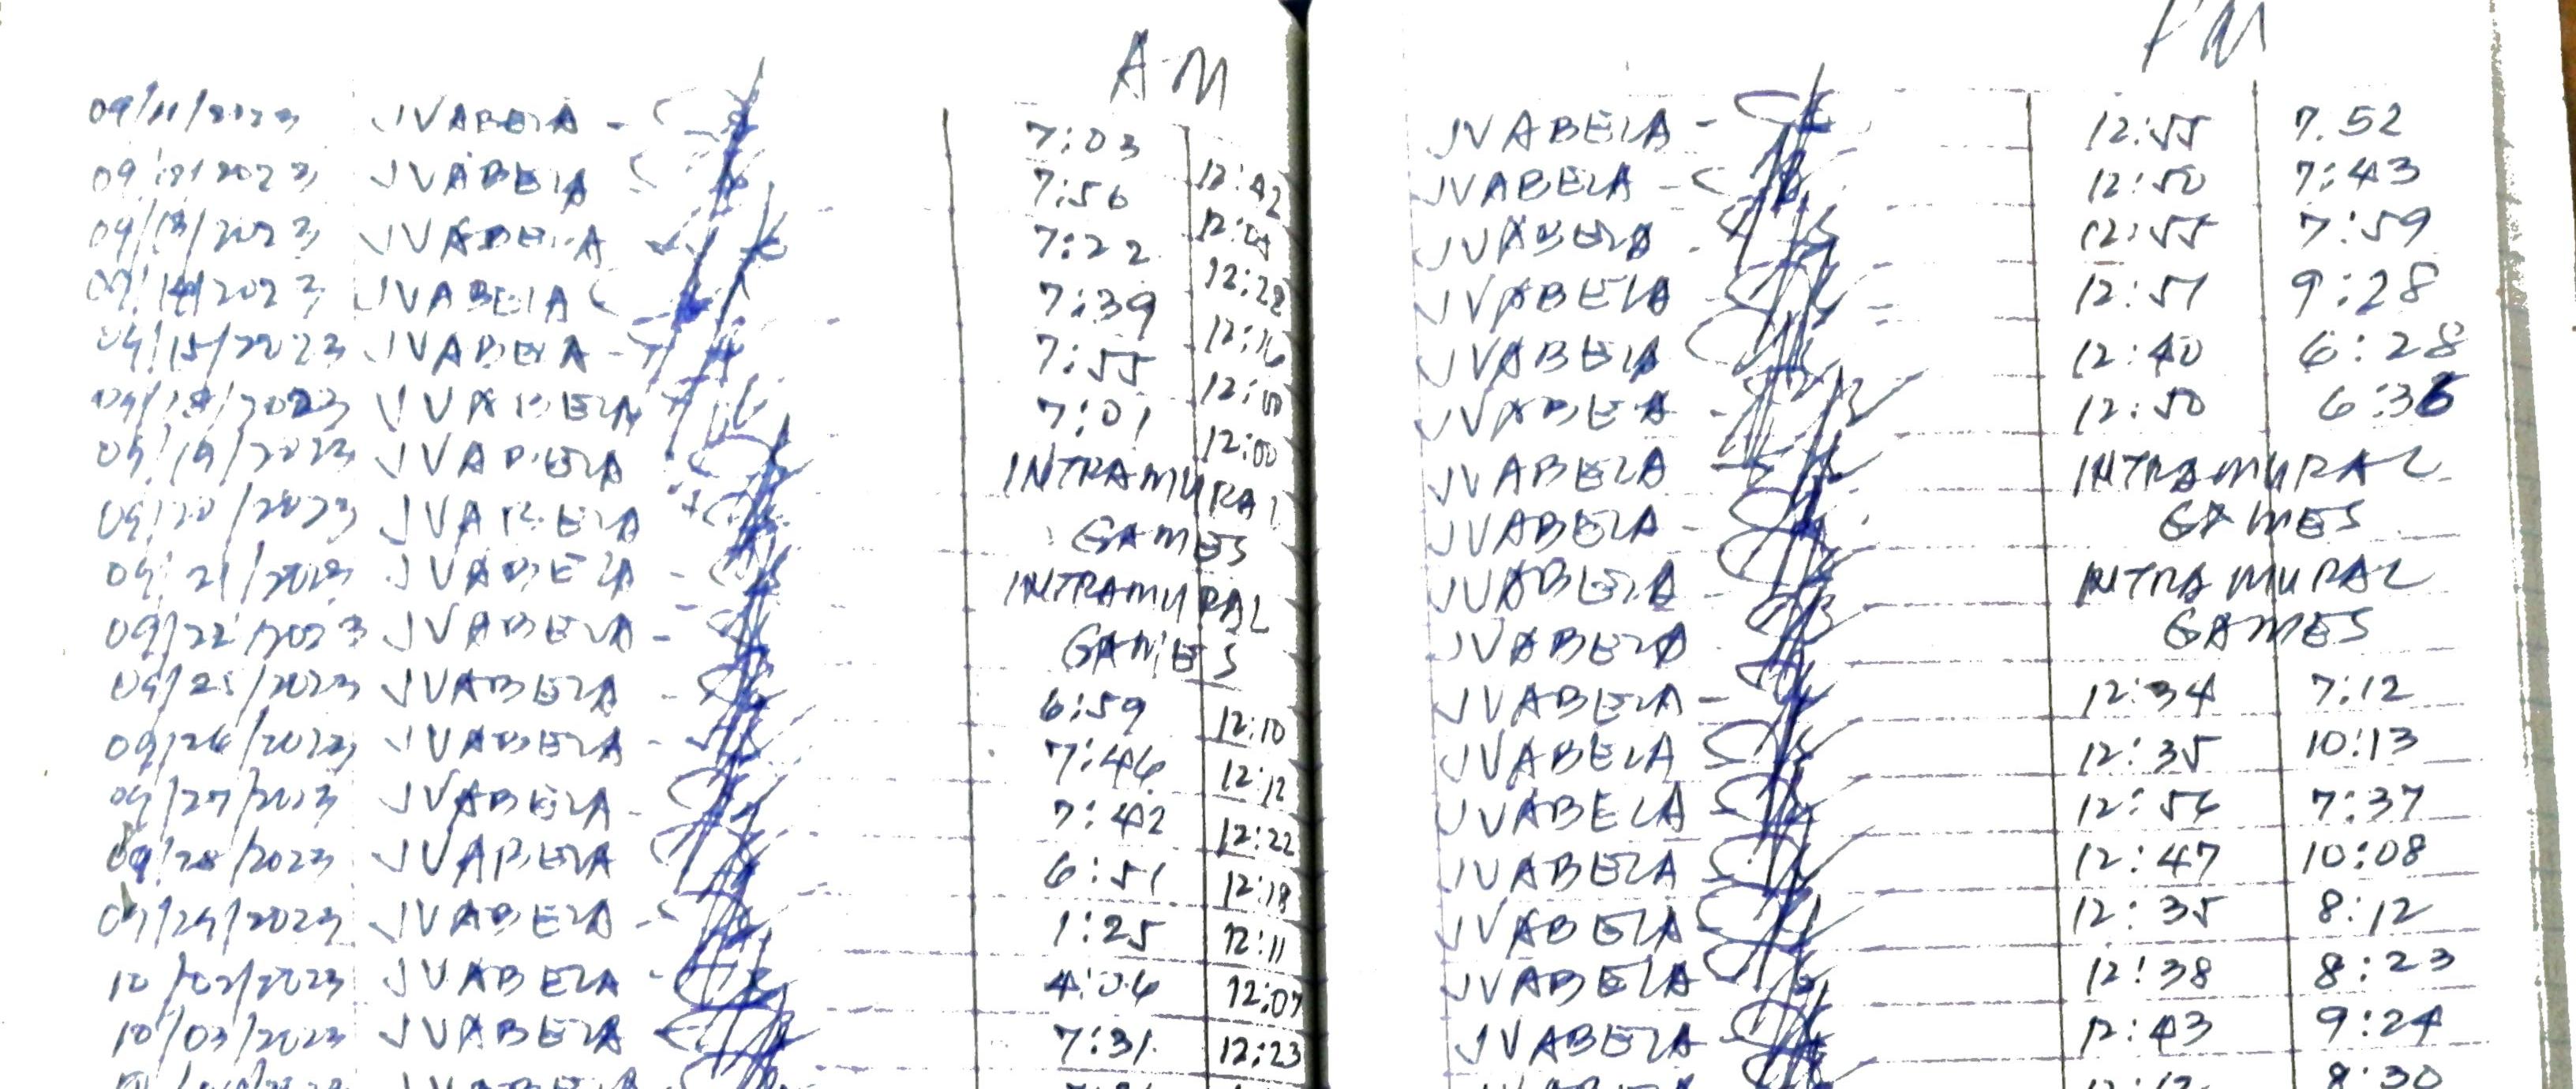 AM
09/11/2023 JVABELA - 7:03 12:42
09/12/2023 JVABELA 7:56
09/13/2023 JVABELA 7:22 12:28
09/14/2023 JVABELA 7:39 12:16
09/15/2023 JVABELA - 7:55 12:10
09/18/2023 JVABELA 7:01 12:00
09/19/2023 JVABELA INTRAMURAL
09/20/2023 JVABELA GAMES
09/21/2023 JVABELA - INTRAMURAL
09/22/2023 JVABELA - GAMES
09/25/2023 JVABELA - 6:59 12:10
09/26/2023 JVABELA - 7:46 12:12
09/27/2023 JVABELA - 7:42 12:22
09/28/2023 JVABELA 6:51 12:18
09/29/2023 JVABELA - 1:25 12:11
10/02/2023 JVABELA - 4:06 12:07
10/03/2023 JVABELA 7:31 12:23
JVABELA
PM
JVABELA - 12:55 7.52
JVABELA - 12:50 7:43
JVABELA - 12:55 7:59
JVABELA 12:51 9:28
JVABELA 12:40 6:28
JVABELA - 12:50 6:36
JVABELA INTRAMURAL
JVABELA - GAMES
JVABELA - INTRAMURAL
JVABELA GAMES
JVABELA - 12:34 7:12
JVABELA 12:35 10:13
JVABELA 12:56 7:37
JVABELA 12:47 10:08
JVABELA 12:35 8:12
JVABELA 12:38 8:23
JVABELA - 12:43 9:24
JVABELA 8:30